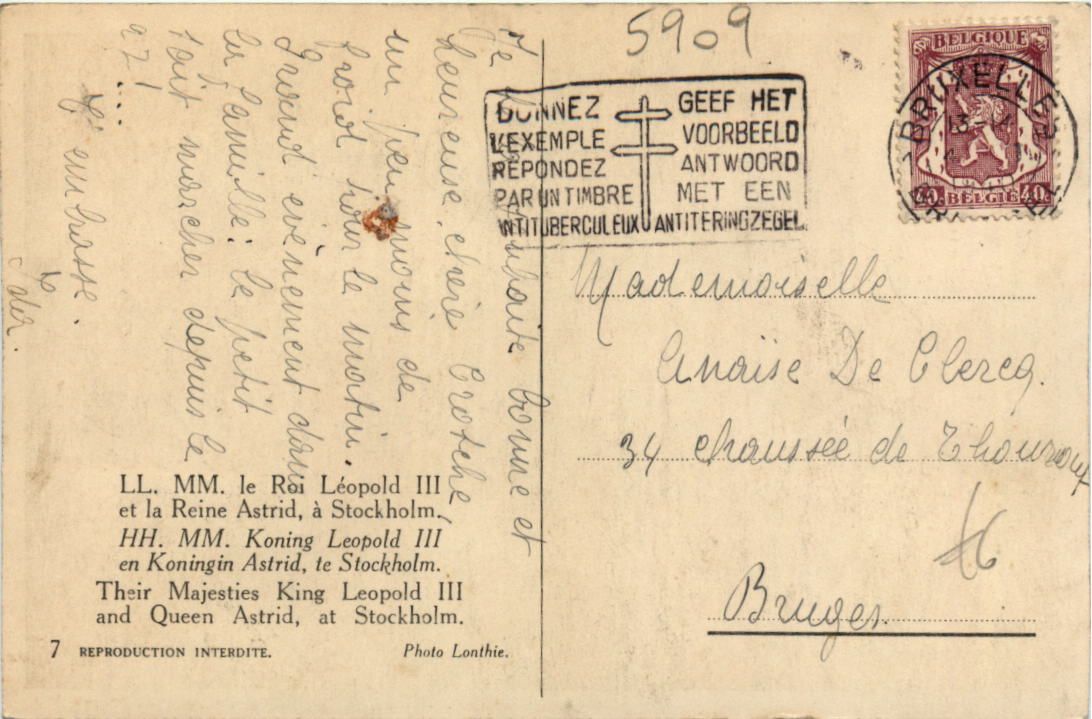 5909
BELGIQUE
40 BELGIË 40
BRUXELLES
DONNEZ
L'EXEMPLE
RÉPONDEZ
PAR UN TIMBRE
ANTITUBERCULEUX
GEEF HET
VOORBEELD
ANTWOORD
MET EEN
ANTITERINGZEGEL
Je te souhaite bonne et
heureuse, chère Crotche,
un peu moins de
froid pour le matin.
Grand évènement dans
la famille: le petit
sait marcher depuis le
27!
....
Je t'embrasse.
Mademoiselle
Anaïse De Clercq.
34 chaussée de Thourout
Bruges.
LL. MM. le Roi Léopold III
et la Reine Astrid, à Stockholm.
HH. MM. Koning Leopold III
en Koningin Astrid, te Stockholm.
Their Majesties King Leopold III
and Queen Astrid, at Stockholm.
7 REPRODUCTION INTERDITE. Photo Lonthie.